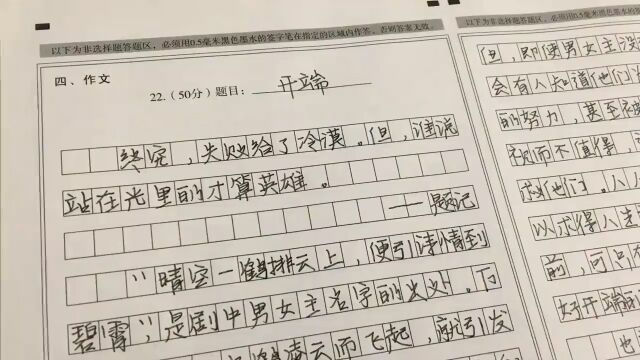 以下为非选择题答题区，必须用0.5毫米黑色墨水的签字笔在指定的区域内作答，否则答案无效。
四、作文
22.（50分）题目：开端
终究，失败给了冷漠。但，谁说
站在光里的才算英雄。
——题记
"晴空一鹤排云上，便引诗情到
碧霄"，是剧中男女主名字的出处。
云而飞起，就引发
以下为非选择题答题区，必须用0.5毫米黑色
但，即便男女主没
会有人知道他们
的努力，甚至被
而不值得，
求他们。人人
以求得人生
前，可只
好开端
也